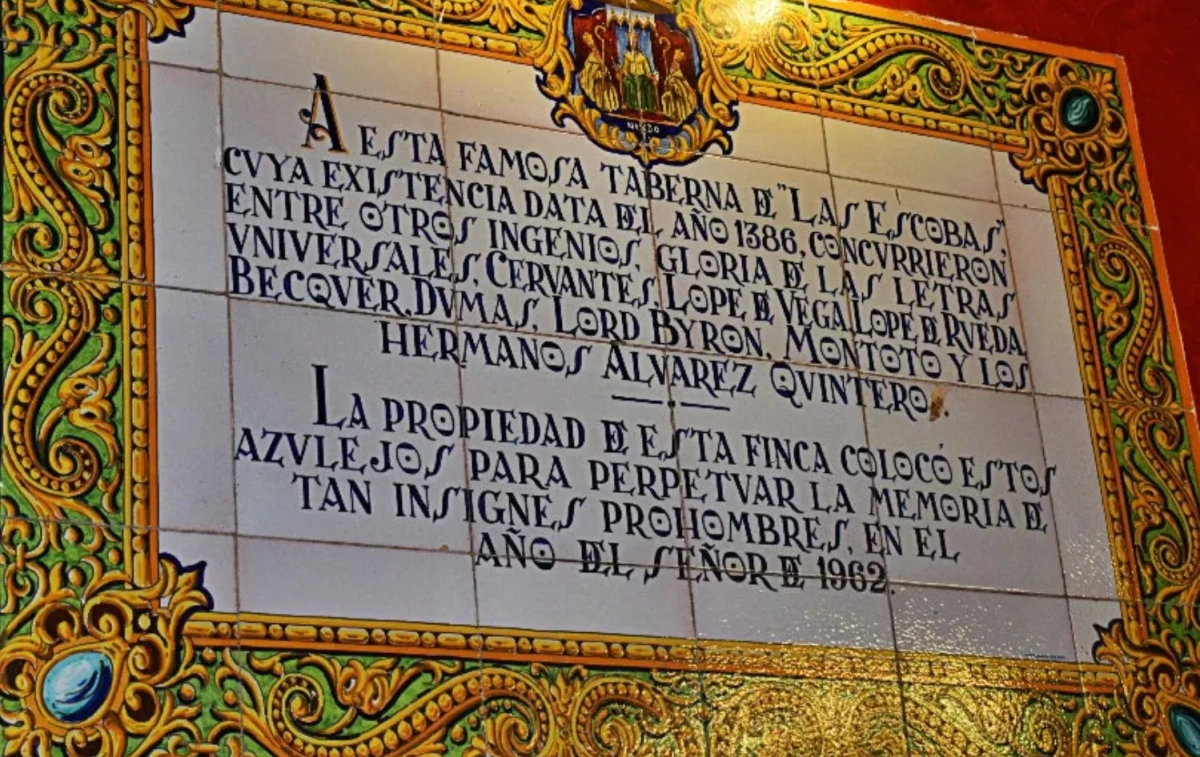 A ESTA FAMOSA TABERNA DE "LAS ESCOBAS",
CVYA EXISTENCIA DATA DEL AÑO 1386, CONCVRRIERON
ENTRE OTROS INGENIOS, GLORIA DE LAS LETRAS
VNIVERSALES, CERVANTES, LOPE DE VEGA, LOPE DE RVEDA,
BECQVER, DVMAS, LORD BYRON, MONTOTO Y LOS
HERMANOS ÁLVAREZ QVINTERO.
LA PROPIEDAD DE ESTA FINCA COLOCÓ ESTOS
AZVLEJOS PARA PERPETVAR LA MEMORIA DE
TAN INSIGNES PROHOMBRES, EN EL
AÑO DEL SEÑOR DE 1962.